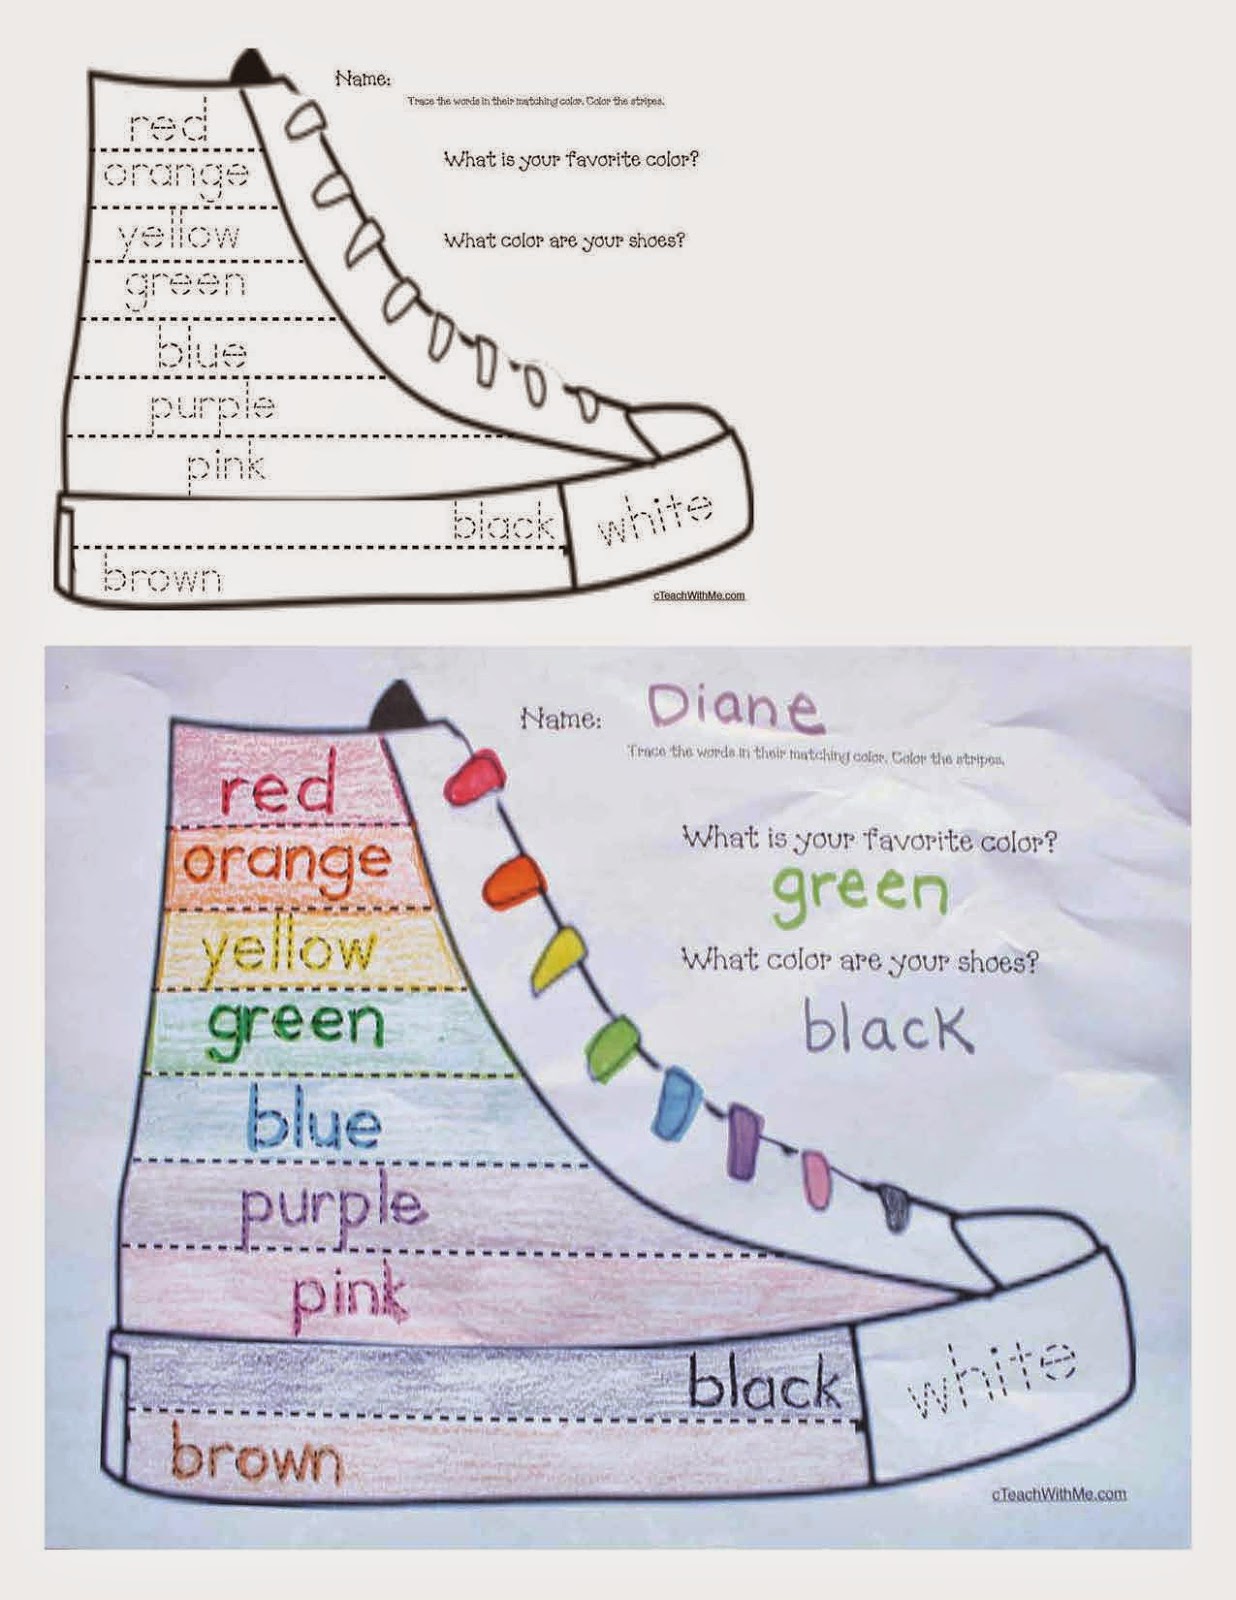 Name:
Trace the words in their matching color. Color the stripes.
What is your favorite color?
What color are your shoes?
red
orange
yellow
green
blue
purple
pink
black
white
brown
cTeachWithMe.com
Name: Diane
Trace the words in their matching color. Color the stripes.
What is your favorite color?
green
What color are your shoes?
black
red
orange
yellow
green
blue
purple
pink
black
white
brown
cTeachWithMe.com